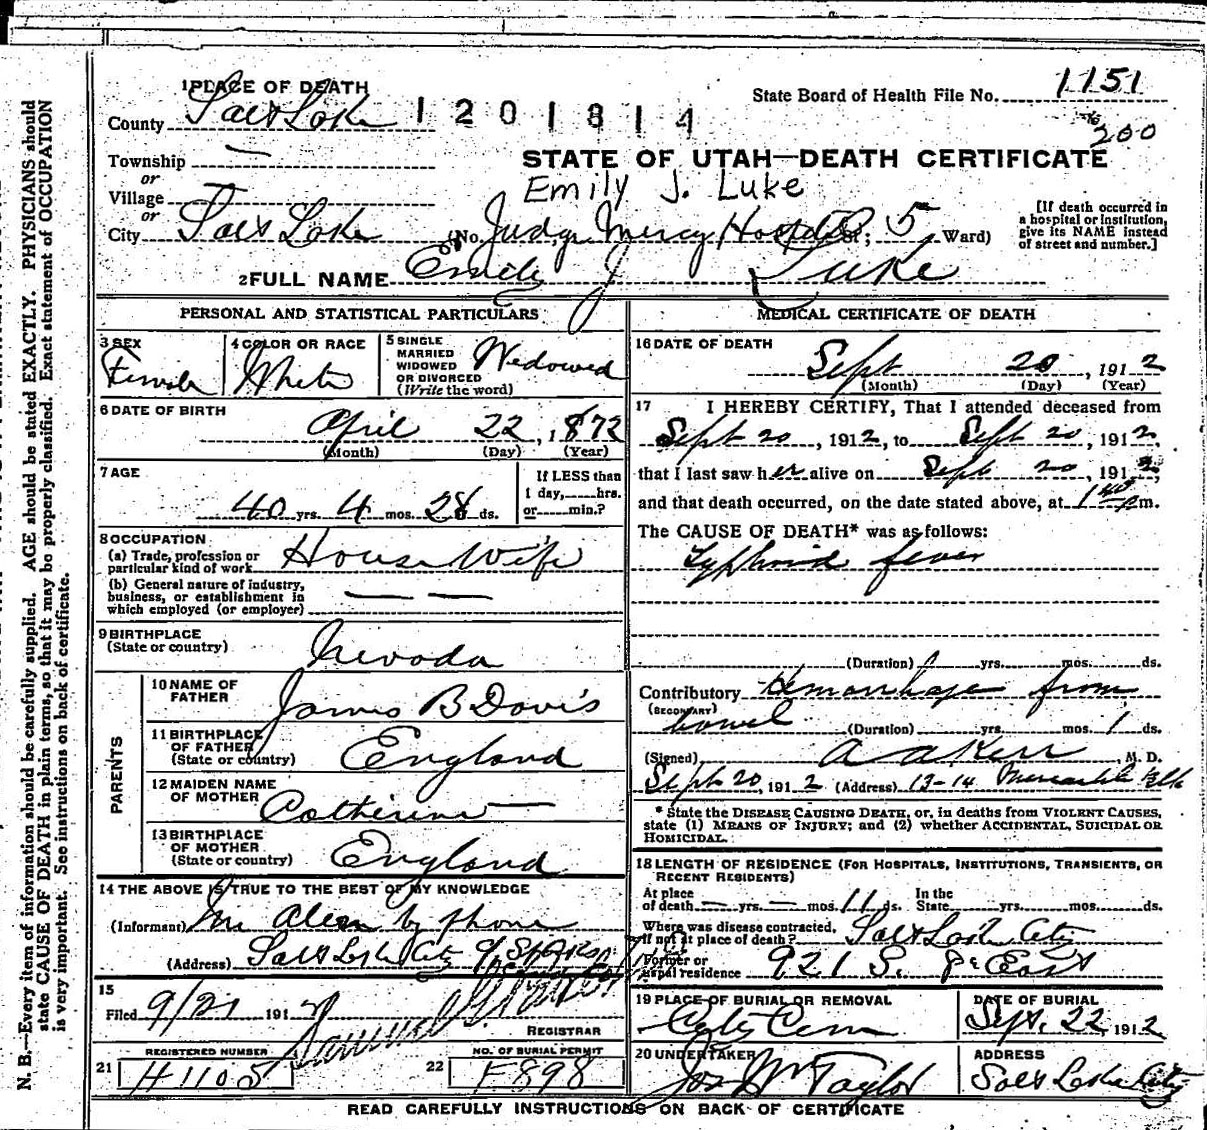 1151
1 PLACE OF DEATH
State Board of Health File No.
County Salt Lake 1201814
200
Township —
STATE OF UTAH—DEATH CERTIFICATE
or
Village
Emily J. Luke
or
City Salt Lake (No. Judge Mercy Hospital St; 5 Ward)
[If death occurred in
a hospital or institution,
give its NAME instead
of street and number.]
2 FULL NAME Emily J Luke
PERSONAL AND STATISTICAL PARTICULARS
3 SEX
Female
4 COLOR OR RACE
White
5 SINGLE
MARRIED
WIDOWED
OR DIVORCED
(Write the word)
Widowed
6 DATE OF BIRTH
April 22, 1872
(Month) (Day) (Year)
7 AGE
40 yrs. 4 mos. 28 ds.
If LESS than
1 day, hrs.
or min.?
8 OCCUPATION
(a) Trade, profession or
particular kind of work House Wife
(b) General nature of industry,
business, or establishment in
which employed (or employer) — —
9 BIRTHPLACE
(State or country) Nevada
PARENTS
10 NAME OF
FATHER James B Davis
11 BIRTHPLACE
OF FATHER
(State or country) England
12 MAIDEN NAME
OF MOTHER Catherine —
13 BIRTHPLACE
OF MOTHER
(State or country) England
14 THE ABOVE IS TRUE TO THE BEST OF MY KNOWLEDGE
(Informant) by phone
(Address) Salt Lake City
15
Filed 9/21 191
REGISTRAR
REGISTERED NUMBER
21 H1105
NO. OF BURIAL PERMIT
22 F898
MEDICAL CERTIFICATE OF DEATH
16 DATE OF DEATH
Sept 20, 1912
(Month) (Day) (Year)
17 I HEREBY CERTIFY, That I attended deceased from
Sept 20, 1912, to Sept 20, 1912,
that I last saw her alive on Sept 20, 1912,
and that death occurred, on the date stated above, at 1 40 p m.
The CAUSE OF DEATH* was as follows:
Typhoid fever
(Duration) yrs. mos. ds.
Contributory Hemorrhage from
(SECONDARY)
bowel (Duration) yrs. mos. 1 ds.
(Signed) A A Kerr, M. D.
Sept 20, 1912 (Address) 13-14 Mercantile Blk
* State the DISEASE CAUSING DEATH, or, in deaths from VIOLENT CAUSES,
state (1) MEANS OF INJURY; and (2) whether ACCIDENTAL, SUICIDAL OR
HOMICIDAL.
18 LENGTH OF RESIDENCE (FOR HOSPITALS, INSTITUTIONS, TRANSIENTS, OR
RECENT RESIDENTS)
At place
of death — yrs. — mos. 11 ds.
In the
State yrs. mos. ds.
Where was disease contracted,
if not at place of death? Salt Lake City
Former or
usual residence 921 S. 9 East
19 PLACE OF BURIAL OR REMOVAL
City Cem
DATE OF BURIAL
Sept. 22, 1912
20 UNDERTAKER
Jos Wm Taylor
ADDRESS
Salt Lake City
READ CAREFULLY INSTRUCTIONS ON BACK OF CERTIFICATE
N. B.—Every item of information should be carefully supplied. AGE should be stated EXACTLY. PHYSICIANS should
state CAUSE OF DEATH in plain terms, so that it may be properly classified. Exact statement of OCCUPATION
is very important. See instructions on back of certificate.